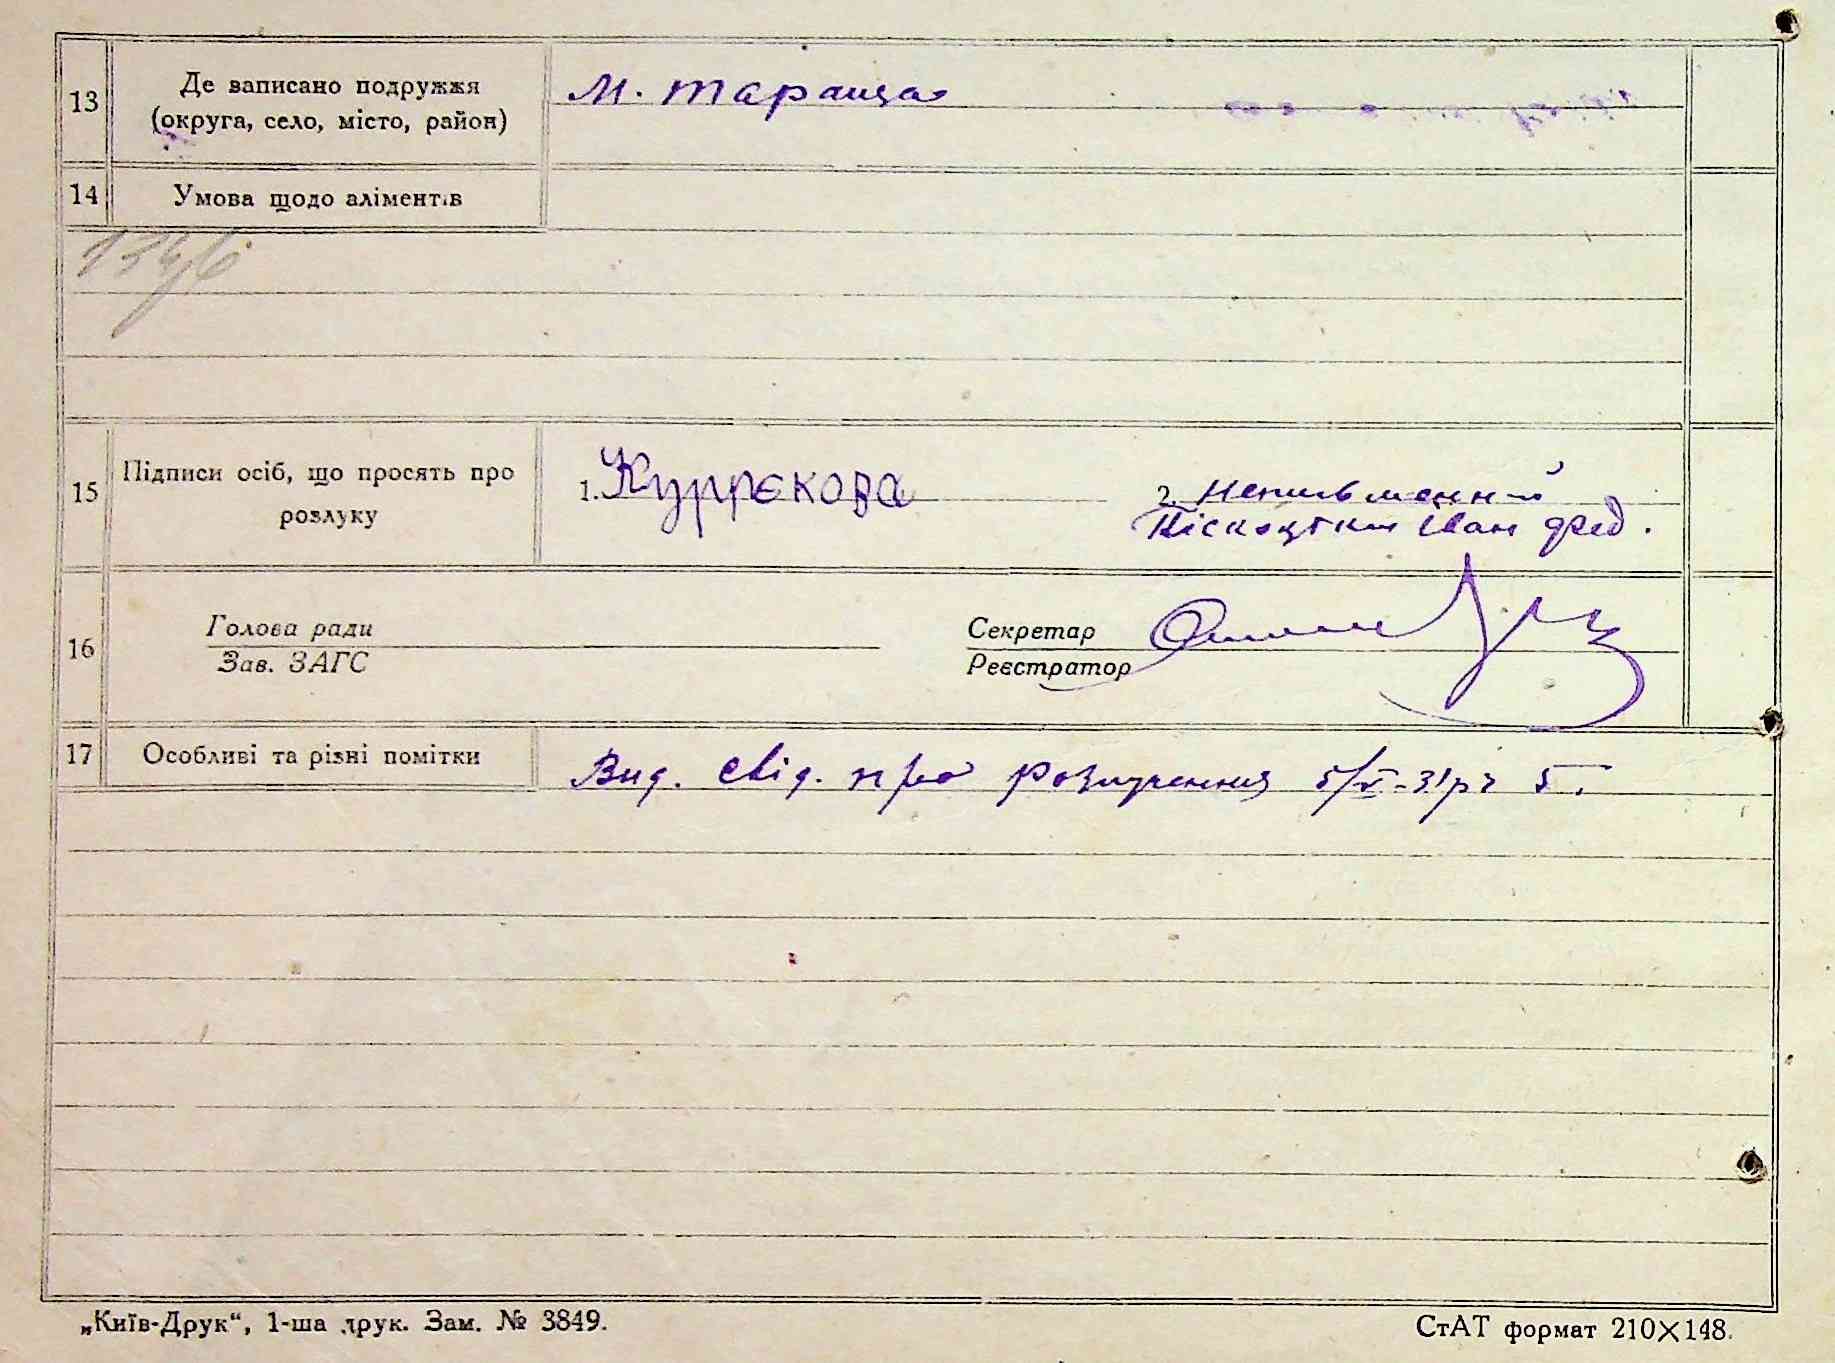 13 Де записано подружжя м. Тараща
(округа, село, місто, район)
14 Умова щодо аліментів
15 Підписи осіб, що просять про розлуку
1. Куррєкова 2. неписьменний
Іван Фед.
16 Голова ради Секретар
Зав. ЗАГС Реєстратор
17 Особливі та різні помітки Вид. свід. про розлучення 5/V-31 р.
„Київ-Друк“, 1-ша друк. Зам. № 3849. СтАТ формат 210×148.